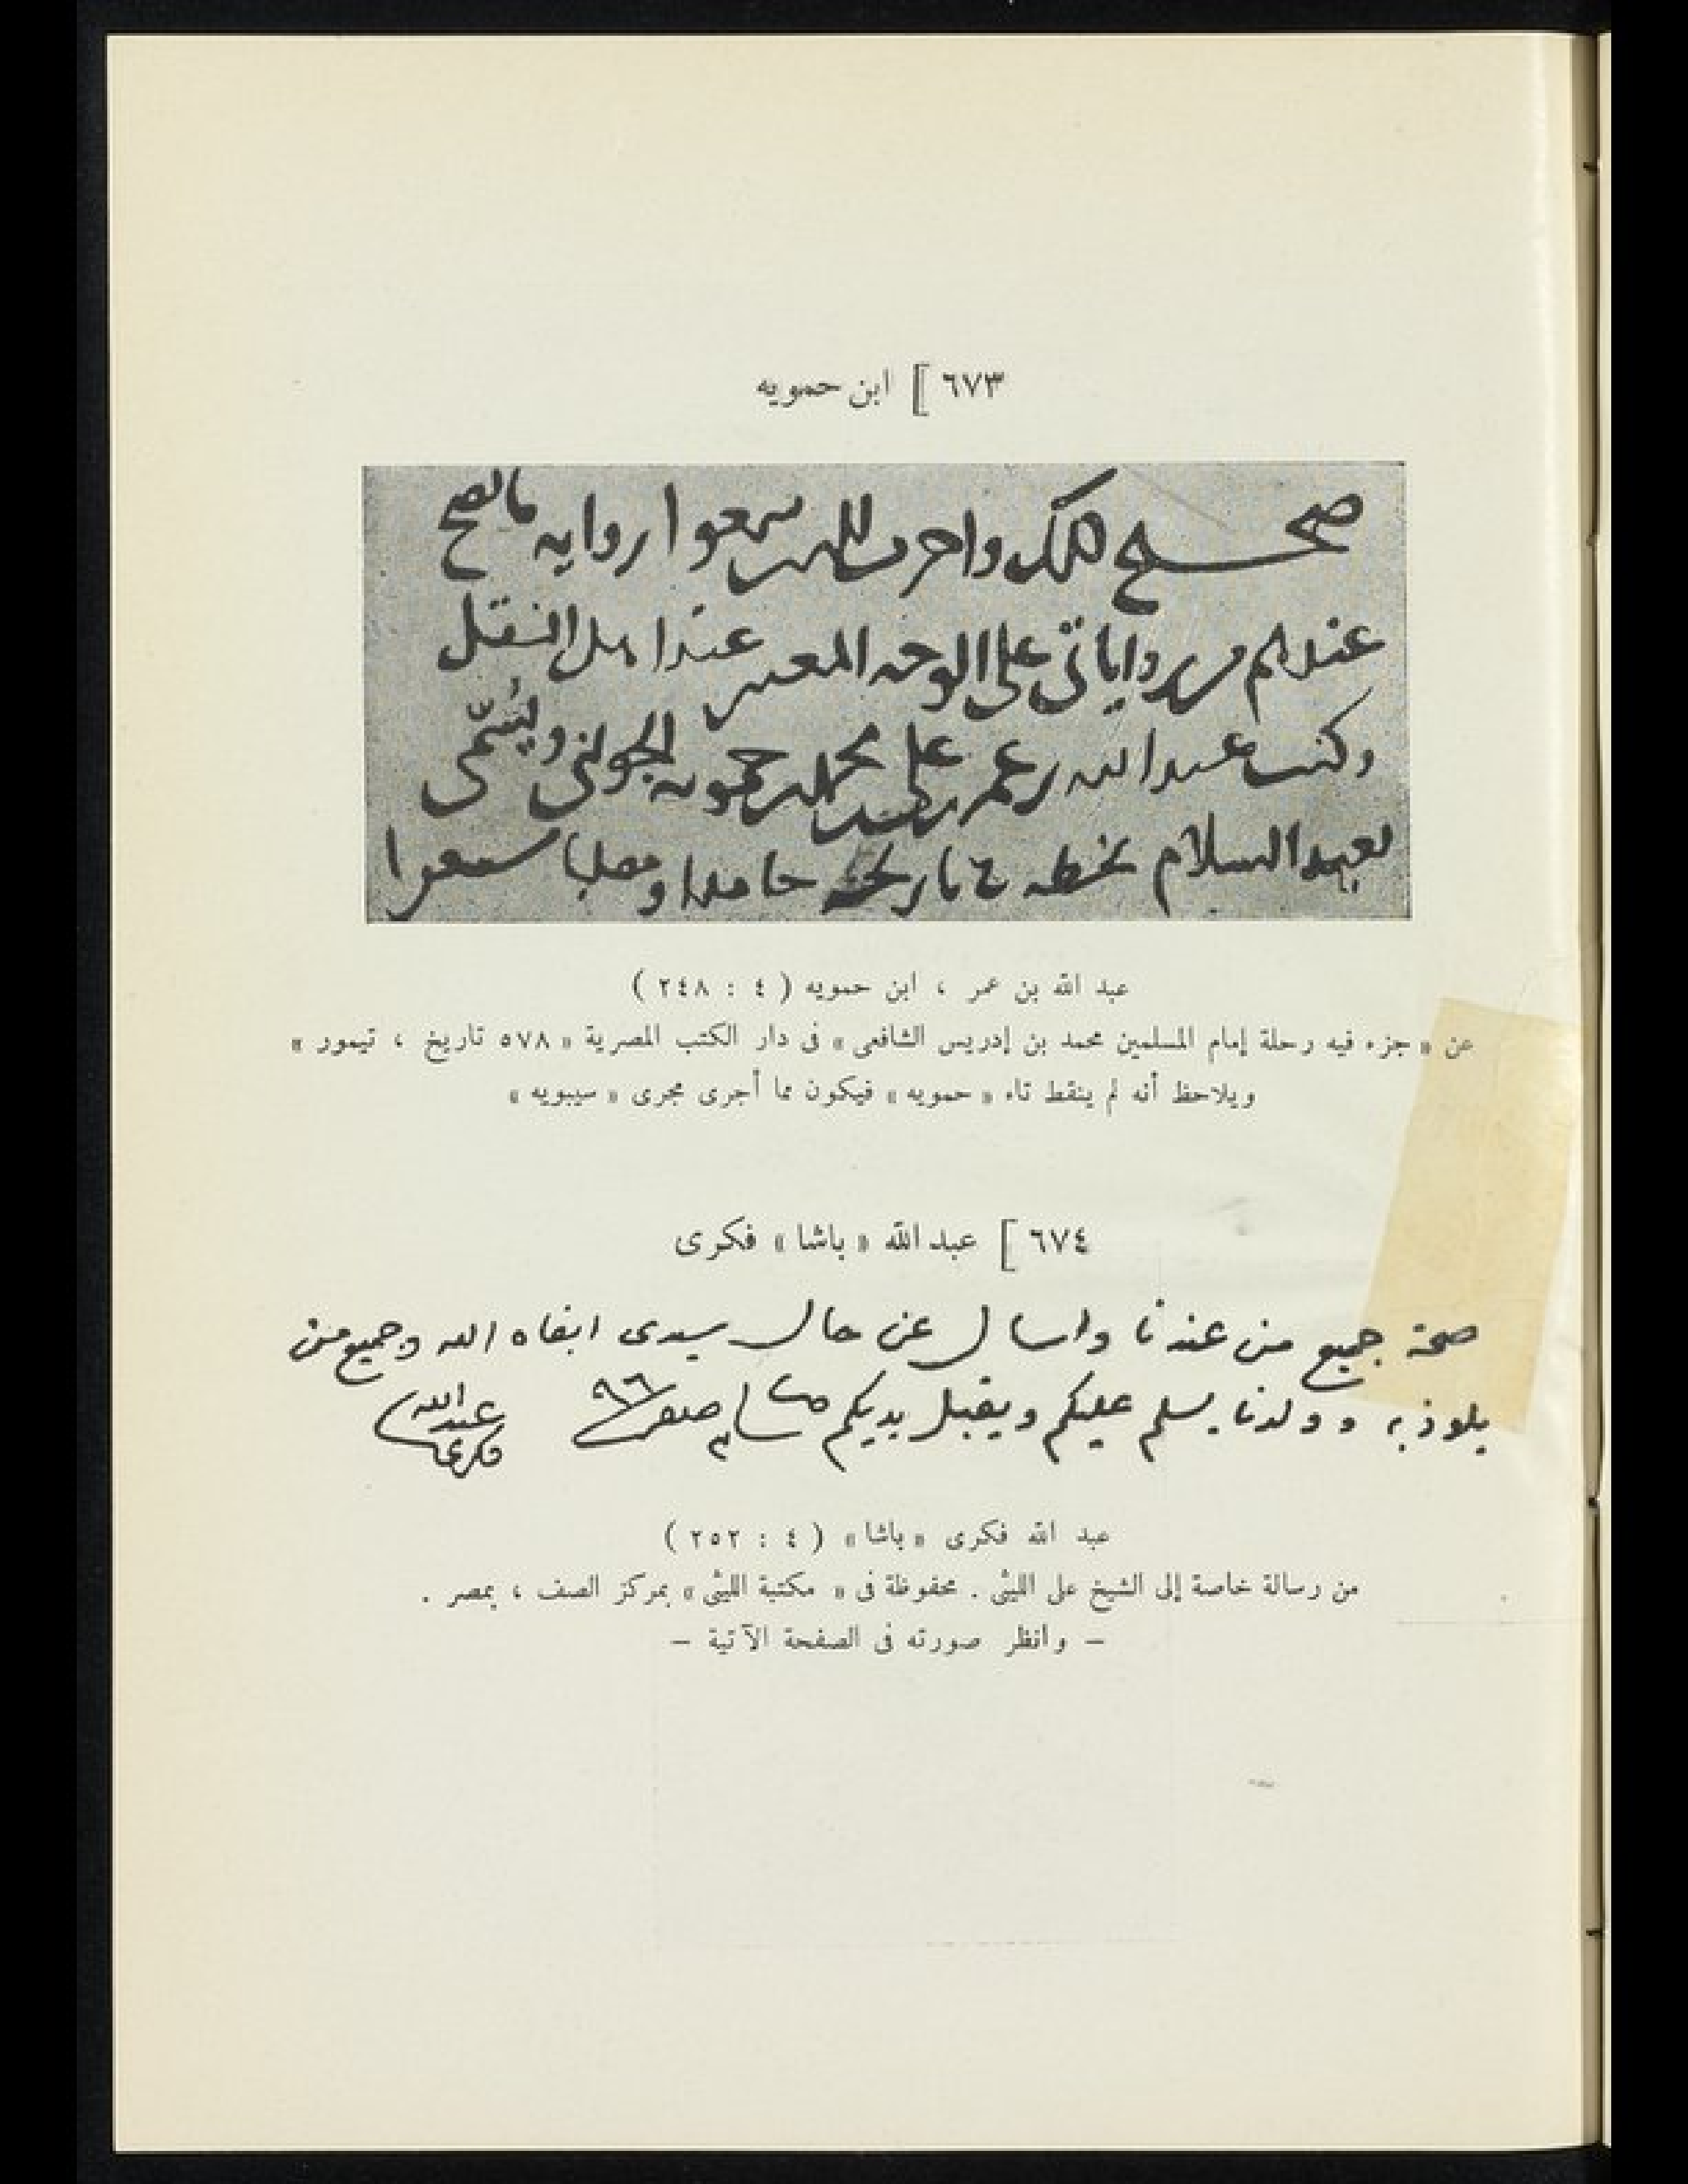 ٦٧٣ [ ابن حمويه
صحيح ذلك واجزت للذين سمعوا رواية ما يصح
عندهم من رواياتى على الوجه المعتبر عند اهل النقل
وكتب عبد الله بن عمر بن على بن محمد بن حمويه الجوينى ويُسَمّى
بعبد السلام بخطه فى تاريخه حامدا ومصليا
عبد الله بن عمر ، ابن حمويه ( ٤ : ٢٤٨ )
عن « جزء فيه رحلة إمام المسلمين محمد بن إدريس الشافعى » فى دار الكتب المصرية « ٥٧٨ تاريخ ، تيمور »
ويلاحظ أنه لم ينقط تاء « حمويه » فيكون مما أجرى مجرى « سيبويه »
٦٧٤ [ عبد الله « باشا » فكرى
صحة جميع من عندنا واسال عن حال سيدى ابقاه الله وجميع من
يلوذ به وولدنا يسلم عليكم ويقبل يديكم صفر ٩٦
عبد الله
فكرى
عبد الله فكرى « باشا » ( ٤ : ٢٥٢ )
من رسالة خاصة إلى الشيخ على الليثى . محفوظة فى « مكتبة الليثى » بمركز الصف ، بمصر .
— وانظر صورته فى الصفحة الآتية —